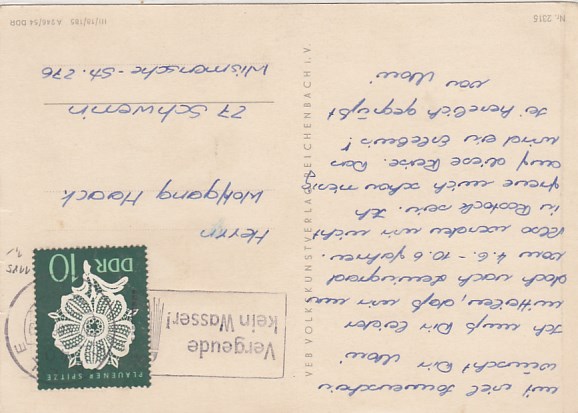 Nr. 2315
III/18/185 A 946/54 DDR
VEB VOLKSKUNSTVERLAG REICHENBACH I. V.
mit viel Sonnenschein
wünscht Dir
Ich muß Dir leider
mitteilen, daß wir nun
doch nach Leningrad
vom 4.6. - 10.6 fahren.
Also werden wir nicht
in Rostock sein. Ich
freue mich schon
auf diese Reise. Das
wird ein Erlebnis!
Sei herzlich gegrüßt
von
Vergeude
kein Wasser!
DDR 10
PLAUENER SPITZE
Herrn
Wolfgang Haack
27 Schwerin
Wismarsche-Str. 276